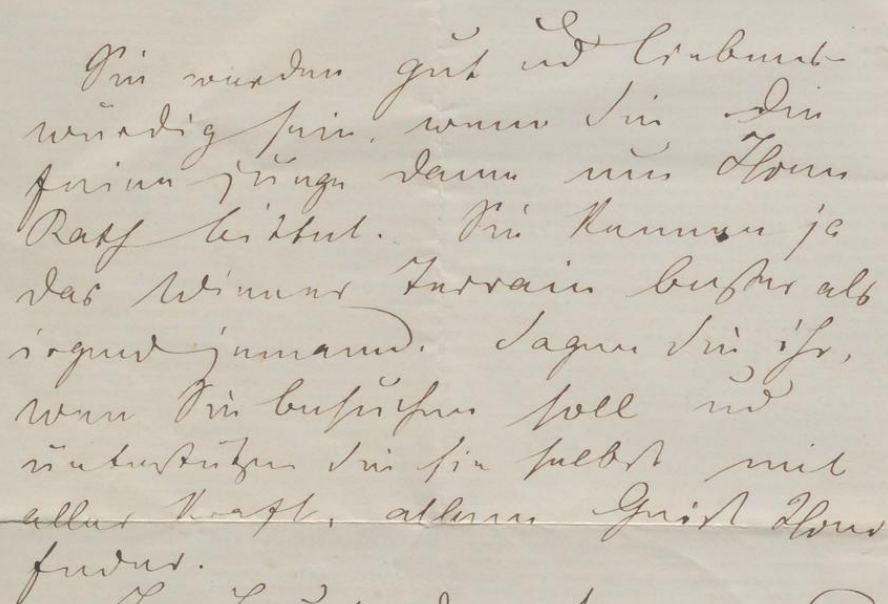 Sie werden gut und liebens-
würdig sein, wenn Sie die
feine junge Dame um Ihren
Rath bittet. Sie kennen ja
das Wiener Terrain besser als
irgend jemand. Sagen Sie ihr,
wen Sie besuchen soll und
unterstützen Sie sie selbst mit
aller Kraft, allem Geist Ihrer
Feder.